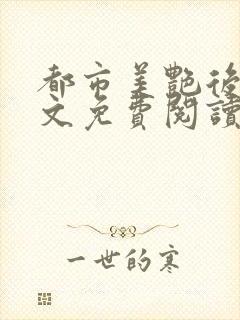 都市美艷後
文免費閱讀
一世的寒